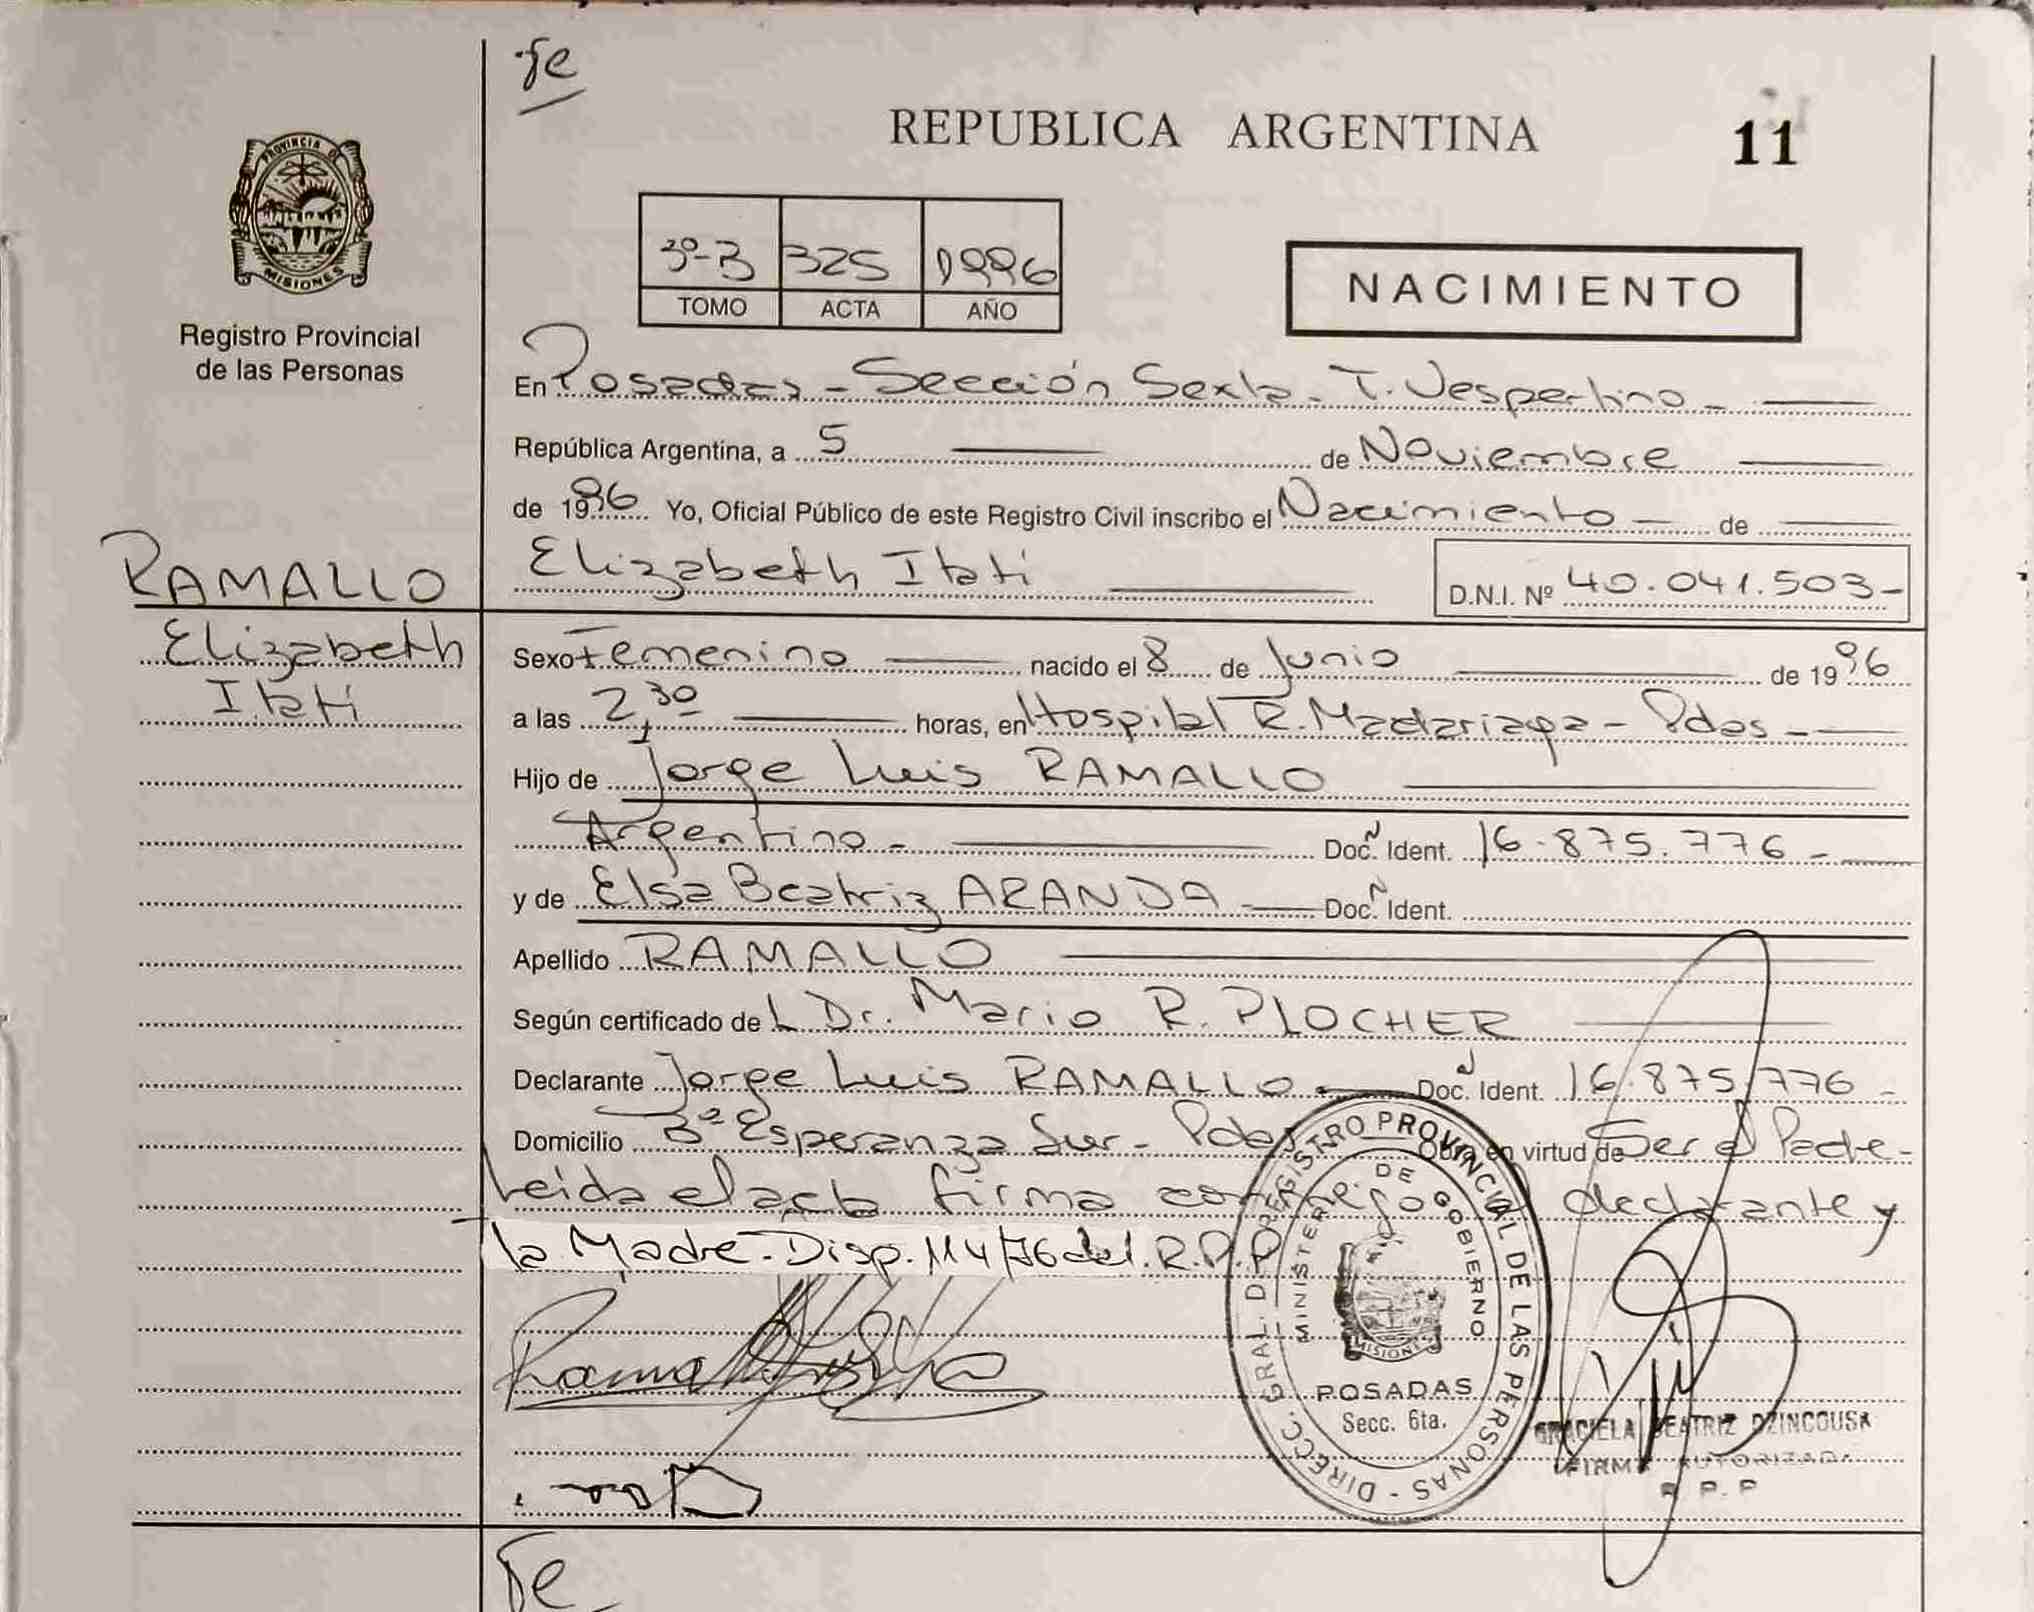 fe
REPUBLICA ARGENTINA
11
PROVINCIA DE
MISIONES
Registro Provincial
de las Personas
3º-B 325 1996
TOMO ACTA AÑO
NACIMIENTO
En Posadas - Sección Sexta - T. Vespertino -
República Argentina, a 5 de Noviembre
de 1996 Yo, Oficial Público de este Registro Civil inscribo el Nacimiento - de
RAMALLO
Elizabeth Itatí
D.N.I. Nº 40.041.503-
Elizabeth
Itatí
Sexo Femenino nacido el 8 de Junio de 1996
a las 2,30 horas, en Hospital R. Madariaga - Pdas -
Hijo de Jorge Luis RAMALLO
Argentino - Doc. Ident. 16.875.776 -
y de Elsa Beatriz ARANDA - Doc. Ident.
Apellido RAMALLO
Según certificado de L Dr. Mario R. PLOCHER
Declarante Jorge Luis RAMALLO - Doc. Ident. 16.875.776 -
Domicilio Bº Esperanza Sur - Pdas Obra en virtud de Ser el Padre -
Leida el acta firma conmigo el declarante y
la Madre - Disp. 114/76 del. R.P.P
Ramallo
DIRECC. GRAL. DE REGISTRO PROVINCIAL DE LAS PERSONAS -
MINISTERIO DE GOBIERNO
MISIONES
POSADAS
Secc. 6ta.
GRACIELA BEATRIZ DZINCOUSA
FIRMA AUTORIZADA
R.P.P
fe